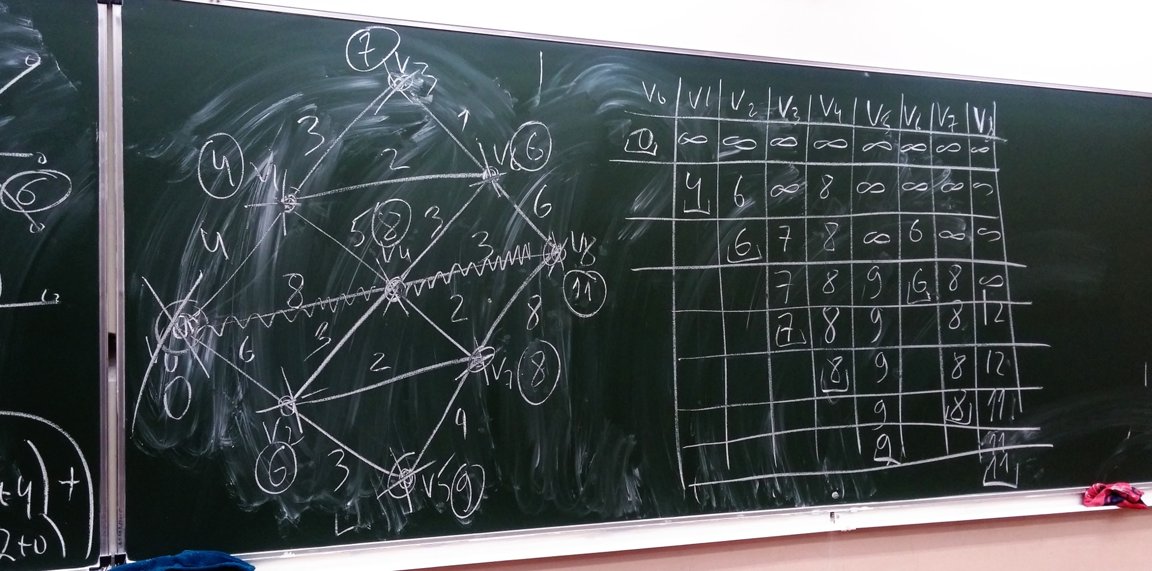 6
+4) +
2+0)
7
V3
1
3
4
V1
2
V6
6
5
8
3
6
4
V4
3
V8
11
8
2
8
V0
0
6
3
2
V7
8
V2
6
3
4
V5
9
V0 V1 V2 V3 V4 V5 V6 V7 V8
0 ∞ ∞ ∞ ∞ ∞ ∞ ∞ ∞
4 6 ∞ 8 ∞ ∞ ∞ ∞
6 7 8 ∞ 6 ∞ ∞
7 8 9 6 8 ∞
7 8 9 8 12
8 9 8 12
9 8 11
9 11